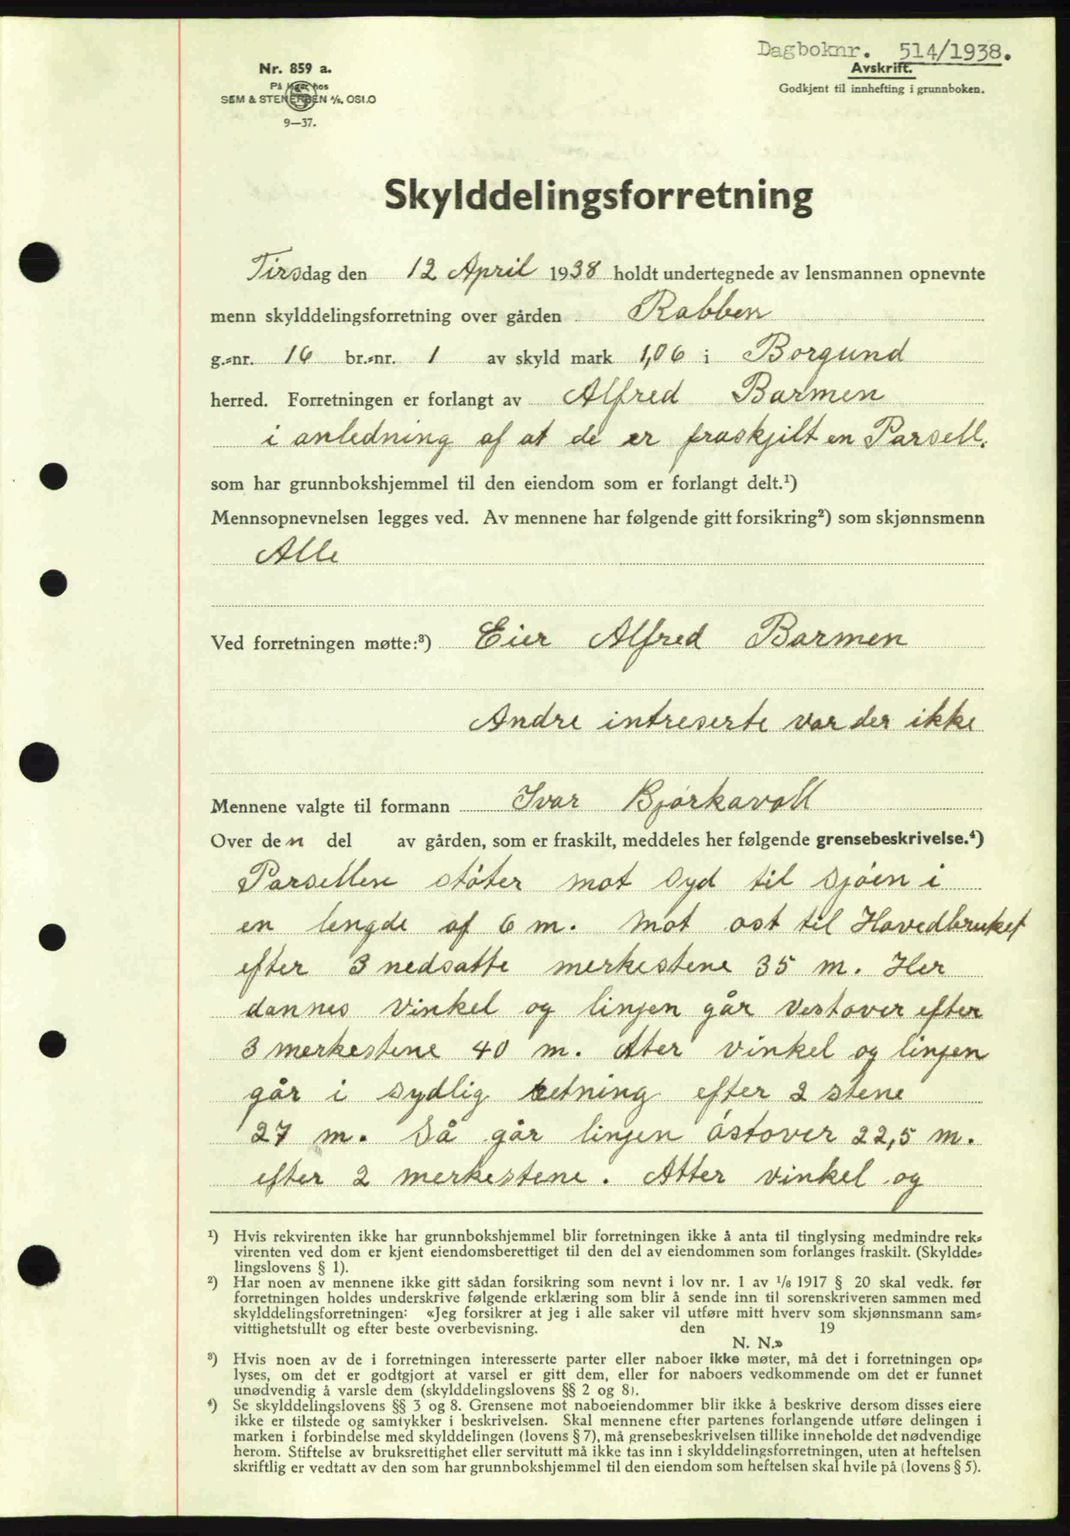 Dagboknr. 514/1938.
Avskrift.
Godkjent til innhefting i grunnboken.
Nr. 859 a.
På lager hos
SEM & STENERSEN A/S, OSLO
9—37.
Skylddelingsforretning
Tirsdag den 12 April 1938 holdt undertegnede av lensmannen opnevnte
menn skylddelingsforretning over gården Rabben
g.-nr. 16 br.-nr. 1 av skyld mark 1,06 i Borgund
herred. Forretningen er forlangt av Alfred Barmen
i anledning af at de er fraskjilt en Parsell.
som har grunnbokshjemmel til den eiendom som er forlangt delt.¹)
Mennsopnevnelsen legges ved. Av mennene har følgende gitt forsikring²) som skjønnsmenn
Alle
Ved forretningen møtte:³) Eier Alfred Barmen
Andre intreserte var der ikke
Mennene valgte til formann Ivar Bjørkavoll
Over den del av gården, som er fraskilt, meddeles her følgende grensebeskrivelse.⁴)
Parsellen støter mot syd til sjøen i
en lengde af 6 m. Mot ost til Hovedbruket
efter 3 nedsatte merkestene 35 m. Her
dannes vinkel og linjen går vestover efter
3 merkestene 40 m. Atter vinkel og linjen
går i sydlig retning efter 2 stene
27 m. Så går linjen østover 22,5 m.
efter 2 merkestene. Atter vinkel og
¹) Hvis rekvirenten ikke har grunnbokshjemmel blir forretningen ikke å anta til tinglysing medmindre rek-
virenten ved dom er kjent eiendomsberettiget til den del av eiendommen som forlanges fraskilt. (Skyldde-
lingslovens § 1).
²) Har noen av mennene ikke gitt sådan forsikring som nevnt i lov nr. 1 av 1/6 1917 § 20 skal vedk. før
forretningen holdes underskrive følgende erklæring som blir å sende inn til sorenskriveren sammen med
skylddelingsforretningen: «Jeg forsikrer at jeg i alle saker vil utføre mitt hverv som skjønnsmann sam-
vittighetsfullt og efter beste overbevisning. den 19
N. N.»
³) Hvis noen av de i forretningen interesserte parter eller naboer ikke møter, må det i forretningen op-
lyses, om det er godtgjort at varsel er gitt dem, eller for naboers vedkommende om det er funnet
unødvendig å varsle dem (skylddelingslovens §§ 2 og 8).
⁴) Se skylddelingslovens §§ 3 og 8. Grensene mot naboeiendommer blir ikke å beskrive dersom disses eiere
ikke er tilstede og samtykker i beskrivelsen. Skal mennene efter partenes forlangende utføre delingen i
marken i forbindelse med skylddelingen (lovens § 7), må grensebeskrivelsen tillike inneholde det nødvendige
herom. Stiftelse av bruksrettighet eller servitutt må ikke tas inn i skylddelingsforretningen, uten at heftelsen
skriftlig er vedtatt av den som har grunnbokshjemmel til den eiendom som heftelsen skal hvile på (lovens § 5).